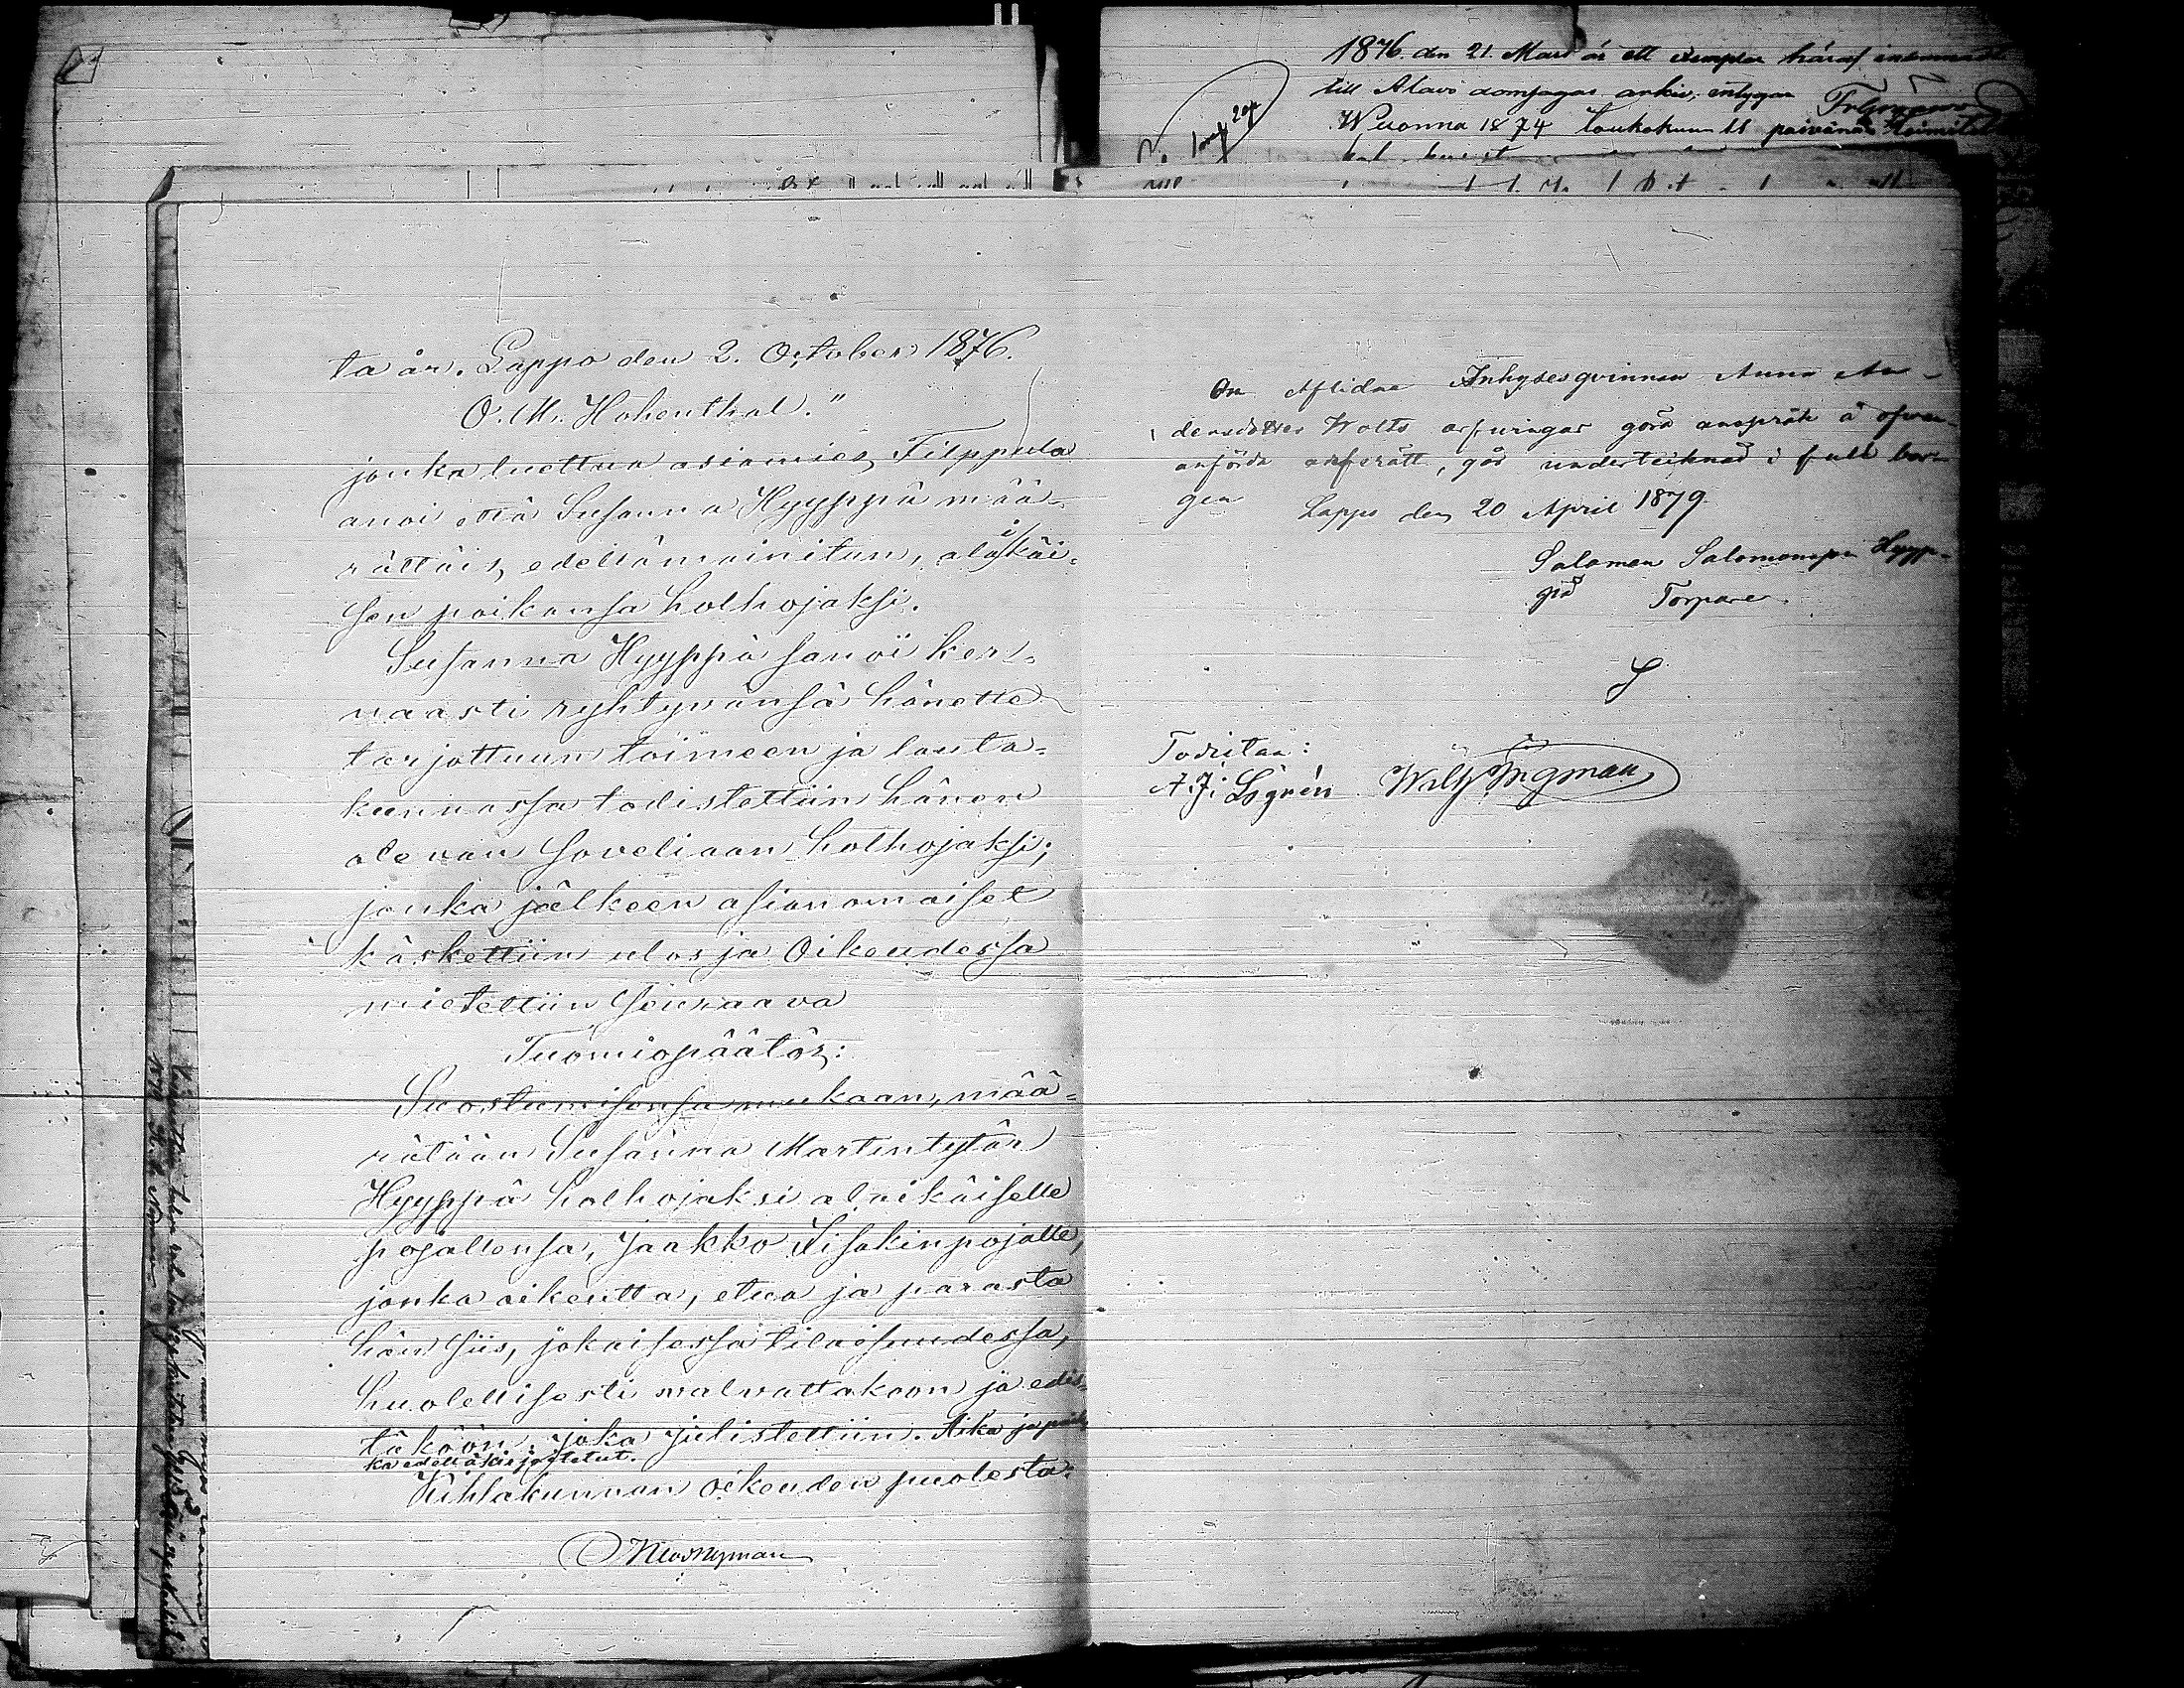 1876. den 21. Mars är ett exemplar häraf inlemnadt
till Alavo domsagas arkiv, intygar
Wuonna 1874 Toukokuun 11 päivänä
ta är. Lappo den 2. October 1876.
O. M. Hohenthal."
jonka luettua asiamies Filppula
anoi että Susanna Hyyppä mää-
rättäis edellämainitun, alaikäi-
sen poikansa holhojaksi.
Susanna Hyyppä sanoi ker-
naasti ryhtyvänsä hänelle
tarjottuun toimeen ja lauta-
kunnassa todistettiin hänen
olevan soveliaan holhojaksi;
jonka jälkeen asianomaiset
käskettiin ulos ja Oikeudessa
mietettiin seuraava
Tuomiopäätös:
Suostumisensa mukaan, mää-
rätään Susanna Martintytär
Hyyppä holhojaksi alaikäiselle
pojallensa, Jaakko Iisakinpojalle,
jonka oikeutta, etua ja parasta
hän siis, jokaisessa tilaisuudessa,
huolellisesti valvattakoon ja edis-
täköön; joka julistettiin. Aika ja paik-
ka edelläkirjoitetut.
Kihlakunnan oikeuden puolesta:
Om Aflidne Inhysesqvinnan Anna An-
dersdotter Wolts arfvingar göra anspråk å ofvan-
anförda arfsrätt, går undertecknad i full bor-
gen Lappo den 20 April 1879.
Salomon Salomonsson Hyyp-
pä Torpare.
S
Todistaa:
A. J. Lögrén Walfr. Ingman